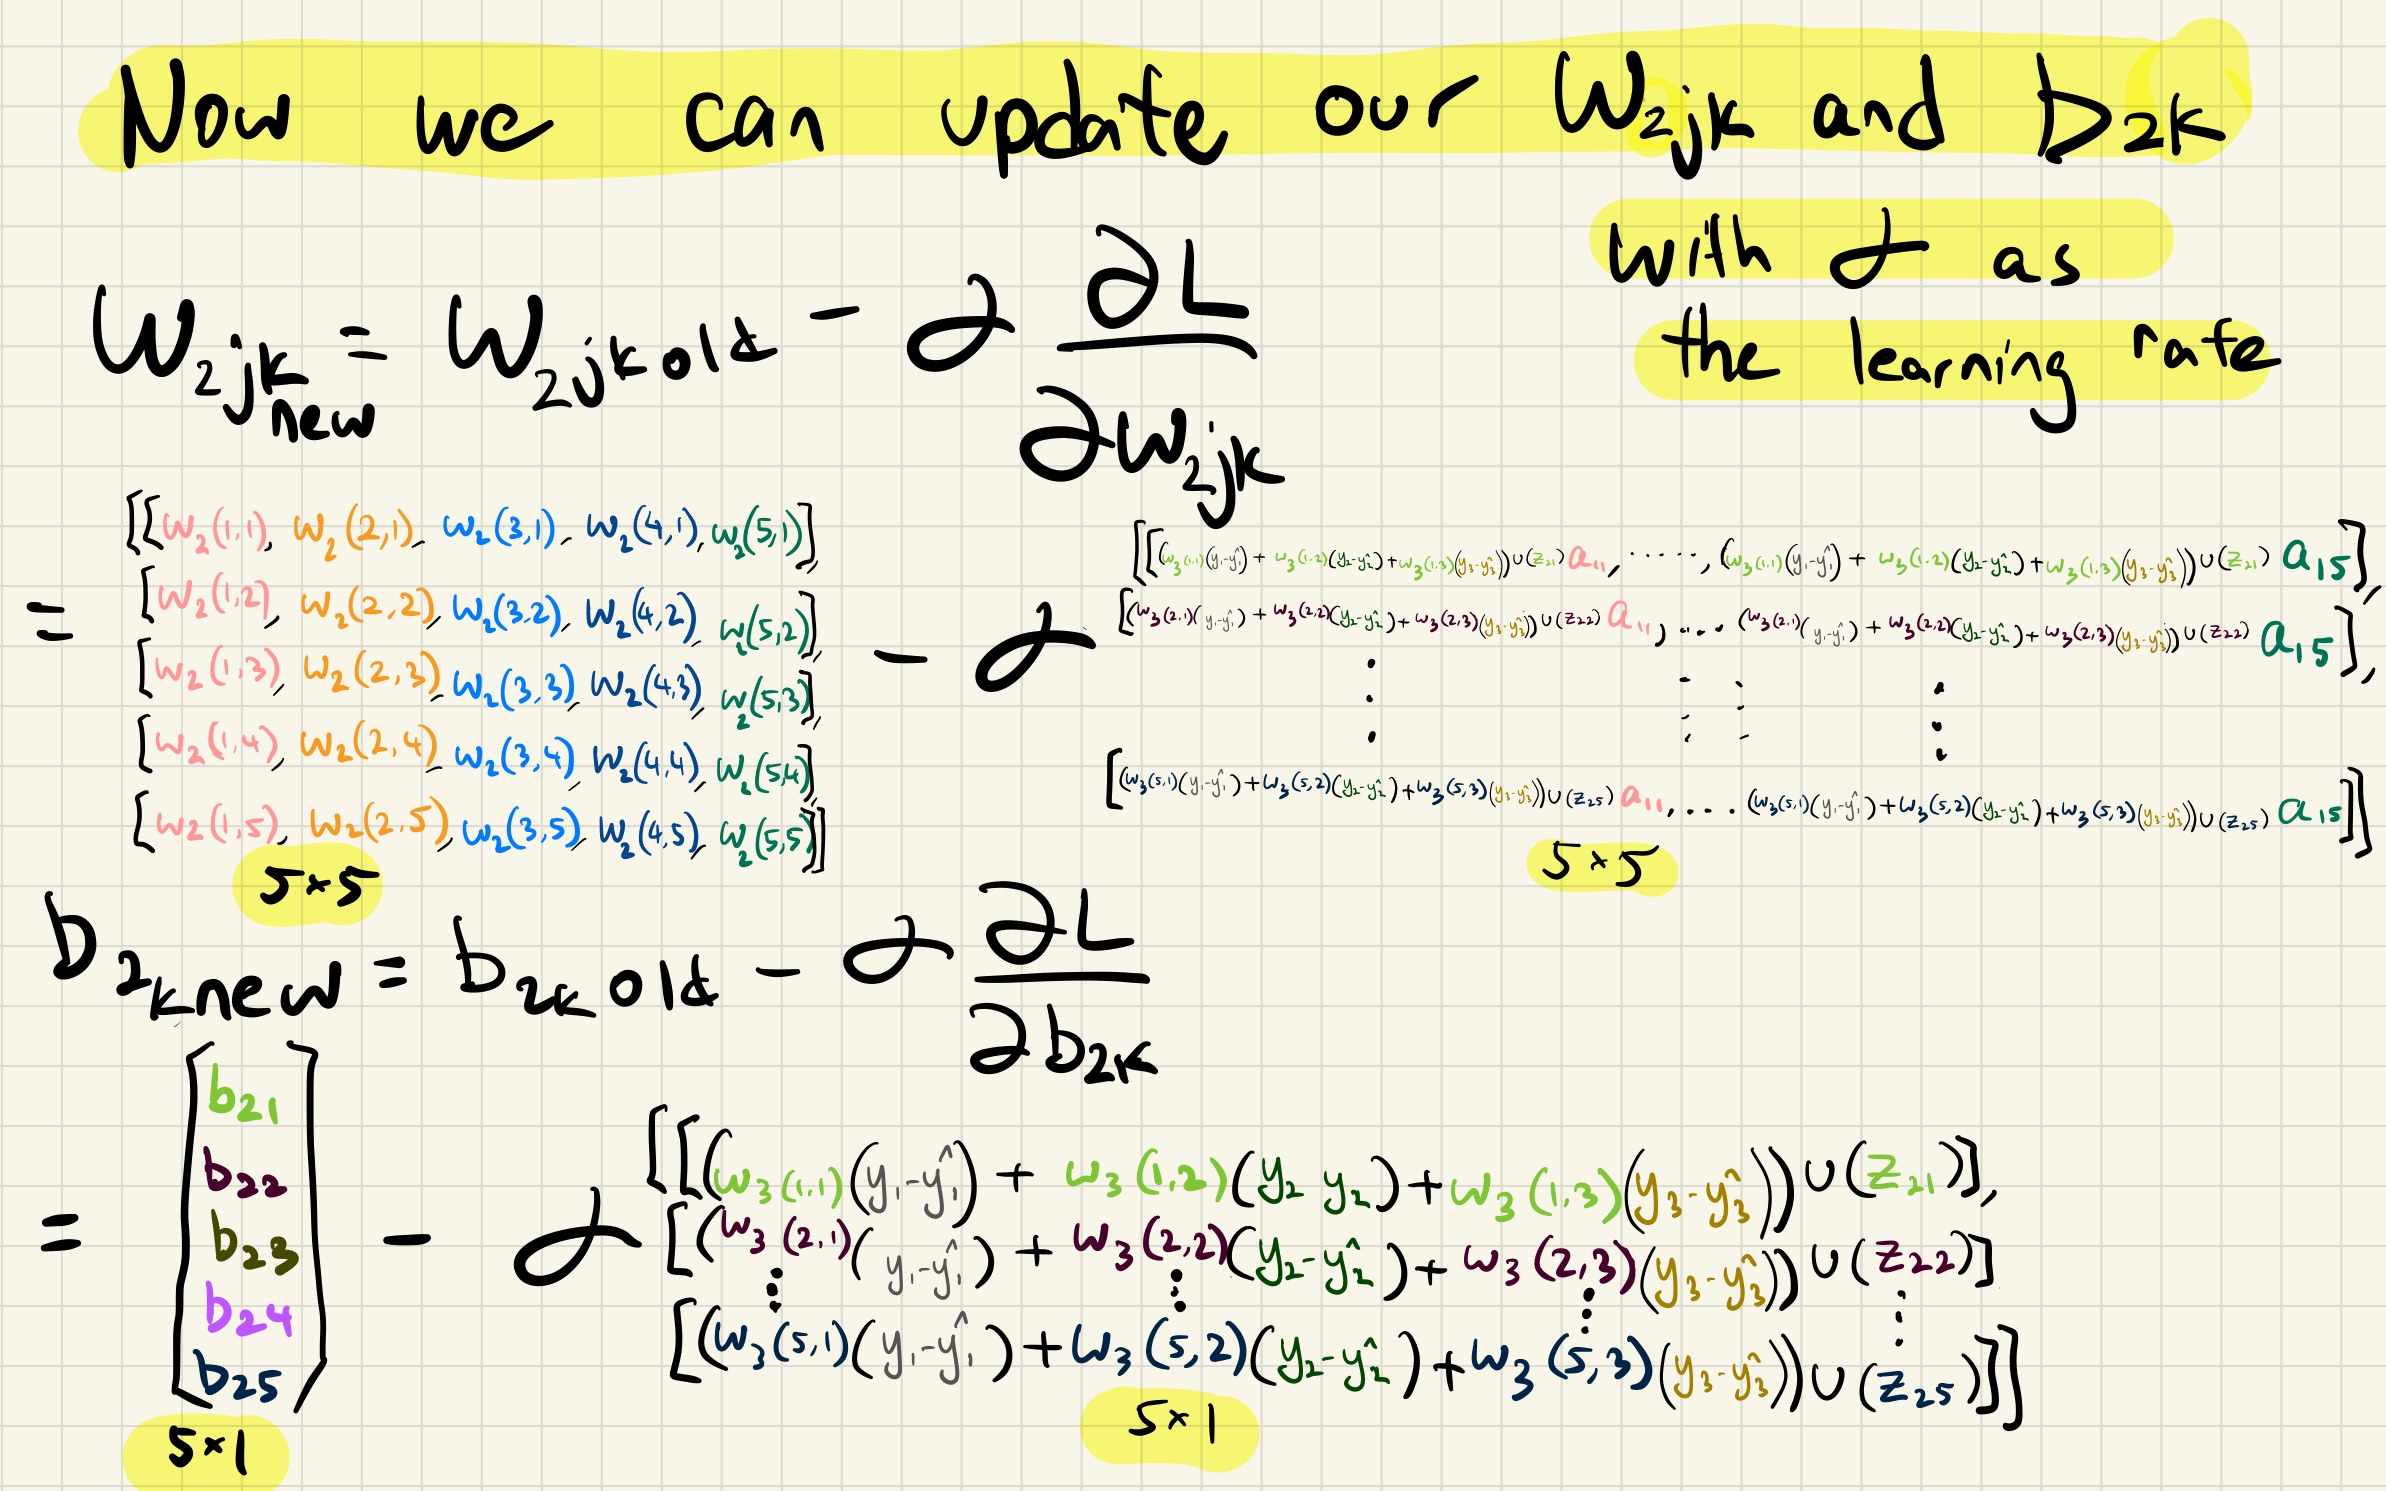 Now we can update our W₂jk and b₂k
with α as
the learning rate
W₂jk new = W₂jk old - α ∂L/∂W₂jk
= [[w₂(1,1), w₂(2,1), w₂(3,1), w₂(4,1), w₂(5,1)],
[w₂(1,2), w₂(2,2), w₂(3,2), w₂(4,2), w₂(5,2)],
[w₂(1,3), w₂(2,3), w₂(3,3), w₂(4,3), w₂(5,3)],
[w₂(1,4), w₂(2,4), w₂(3,4), w₂(4,4), w₂(5,4)],
[w₂(1,5), w₂(2,5), w₂(3,5), w₂(4,5), w₂(5,5)]]
5×5
- α [[(w₃(1,1)(y₁-ŷ₁) + w₃(1,2)(y₂-ŷ₂) + w₃(1,3)(y₃-ŷ₃)) U(z₂₁) a₁₁, ....., (w₃(1,1)(y₁-ŷ₁) + w₃(1,2)(y₂-ŷ₂) + w₃(1,3)(y₃-ŷ₃)) U(z₂₁) a₁₅],
[(w₃(2,1)(y₁-ŷ₁) + w₃(2,2)(y₂-ŷ₂) + w₃(2,3)(y₃-ŷ₃)) U(z₂₂) a₁₁, .... (w₃(2,1)(y₁-ŷ₁) + w₃(2,2)(y₂-ŷ₂) + w₃(2,3)(y₃-ŷ₃)) U(z₂₂) a₁₅],
[(w₃(5,1)(y₁-ŷ₁) + w₃(5,2)(y₂-ŷ₂) + w₃(5,3)(y₃-ŷ₃)) U(z₂₅) a₁₁, .... (w₃(5,1)(y₁-ŷ₁) + w₃(5,2)(y₂-ŷ₂) + w₃(5,3)(y₃-ŷ₃)) U(z₂₅) a₁₅]]
5×5
b₂k new = b₂k old - α ∂L/∂b₂k
= [b₂₁
b₂₂
b₂₃
b₂₄
b₂₅]
5×1
- α [[(w₃(1,1)(y₁-ŷ₁) + w₃(1,2)(y₂ y₂) + w₃(1,3)(y₃-ŷ₃)) U(z₂₁)],
[(w₃(2,1)(y₁-ŷ₁) + w₃(2,2)(y₂-ŷ₂) + w₃(2,3)(y₃-ŷ₃)) U(z₂₂)]
[(w₃(5,1)(y₁-ŷ₁) + w₃(5,2)(y₂-ŷ₂) + w₃(5,3)(y₃-ŷ₃)) U(z₂₅)]]
5×1